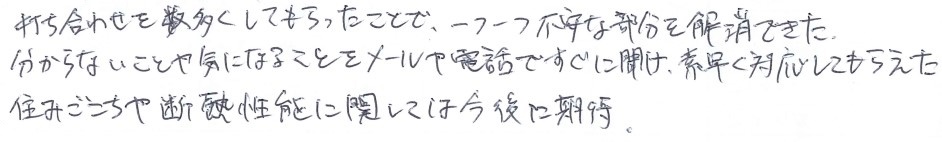 打ち合わせを数多くしてもらったことで、一つ一つ不安な部分を解消できた。
分からないことや気になることをメールや電話ですぐに聞け、素早く対応してもらえた
住みごこちや断熱性能に関しては今後に期待。